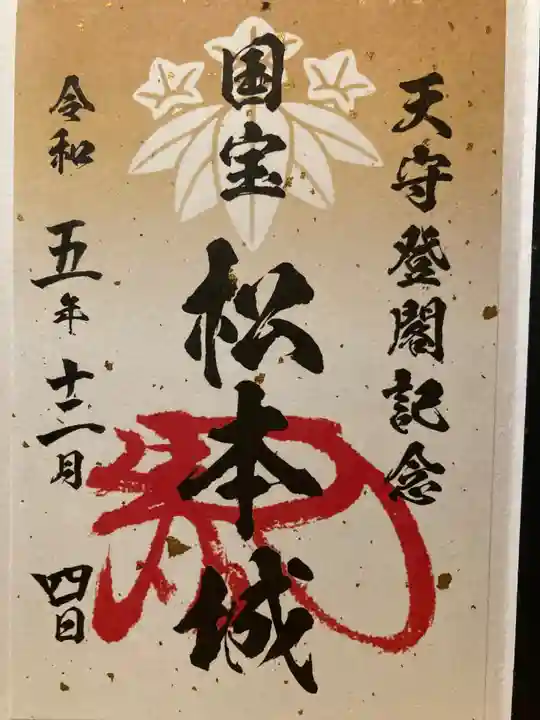 天守登閣記念
国宝 松本城
令和五年十二月四日